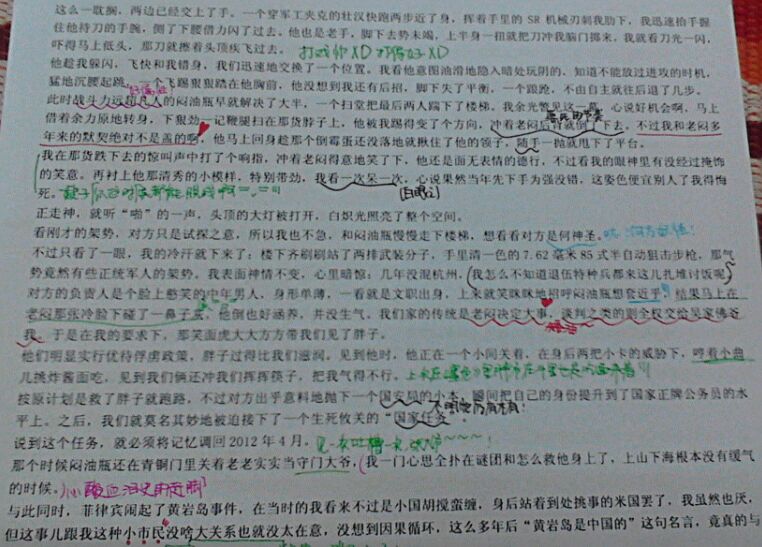 这么一耽搁，两边已经交上了手。一个穿军工夹克的壮汉快跑两步近了身，挥着手里的 SR 机械刃刺我肋下，我迅速抬手握
住他持刀的手腕，侧了下腰借力闪了过去。他也是老手，脚下去势未竭，上半身一扭就把刀冲我脑门掷来，我就看刀光一闪，
吓得马上低头，那刀就擦着头顶疾飞过去。 打戏帅XD
他趁我躲闪，飞快和我错身，我们迅速地交换了一个位置。我看他意图油滑地隐入暗处玩阴的，知道不能放过进攻的时机，
猛地沉腰起跳，一个飞踢狠狠踏在他胸前，他没想到我还有后招，脚下失了平衡，一个踉跄，不由自主就往后退了几步。
此时战斗力远超凡人的闷油瓶早就解决了大半，一个扫堂把最后两人踹下了楼梯，我余光瞥见这一幕，心说好机会啊，马上
借着余力原地转身，下狠劲一记鞭腿扫在那货脖子上，他被我踢得变了个方向，冲着老闷后背就倒了下去。不过我和老闷多
年来的默契绝对不是盖的啊，他马上回身趁那个倒霉蛋还没落地就揪住了他的领子，随手一抛就甩下了平台。
我在那货跌下去的惊叫声中打了个响指，冲着老闷得意地笑了下，他还是面无表情的德行，不过看我的眼神里有没经过掩饰
的笑意。再衬上他那清秀的小模样，特别带劲，我看一次呆一次，心说果然当年先下手为强没错，这姿色便宜别人了我得悔
死。
正走神，就听“啪”的一声，头顶的大灯被打开，白炽光照亮了整个空间。
看刚才的架势，对方只是试探之意，所以我也不急，和闷油瓶慢慢走下楼梯，想看看对方是何神圣。
不过只看了一眼，我的冷汗就下来了：楼下齐刷刷站了两排武装分子，手里清一色的 7.62 毫米 85 式半自动狙击步枪，那气
势竟然有些正统军人的架势。我表面神情不变，心里暗惊：几年没混杭州，我怎么不知道退伍特种兵都来这儿扎堆讨饭呢
对方的负责人是个脸上憨笑的中年男人，身形单薄，一看就是文职出身，上来就笑眯眯地招呼闷油瓶想套近乎，结果马上在
老闷那张冷脸下碰了一鼻子灰，他倒也好涵养，并没生气。我们家的传统是老闷决定大事，谈判之类的则全权交给吴家佛爷
我，于是在我的要求下，那笑面虎大大方方带我们见了胖子。
他们明显实行优待俘虏政策，胖子过得比我们滋润。见到他时，他正在一个小间关着，在身后两把小卡的威胁下，哼着小曲
儿挑炸酱面吃，见到我们俩还冲我们挥挥筷子，把我气得不行。
按原计划是救了胖子就跑路，不过对方出乎意料地抛下一个国安局的小本，瞬间把自己的身份提升到了国家正牌公务员的水
平上。之后，我们就莫名其妙地被迫接下了一个生死攸关的“国家任务”。
说到这个任务，就必须将记忆调回 2012 年 4 月。
那个时候闷油瓶还在青铜门里关着老老实实当守门大爷，我一门心思全扑在谜团和怎么救他身上了，上山下海根本没有缓气
的时候。
与此同时，菲律宾闹起了黄岩岛事件，在当时的我看来不过是小国胡搅蛮缠，身后站着到处挑事的米国罢了，我虽然也厌，
但这事儿跟我这种小市民没啥大关系也就没太在意，没想到因果循环，这么多年后“黄岩岛是中国的”这句名言，竟真的与